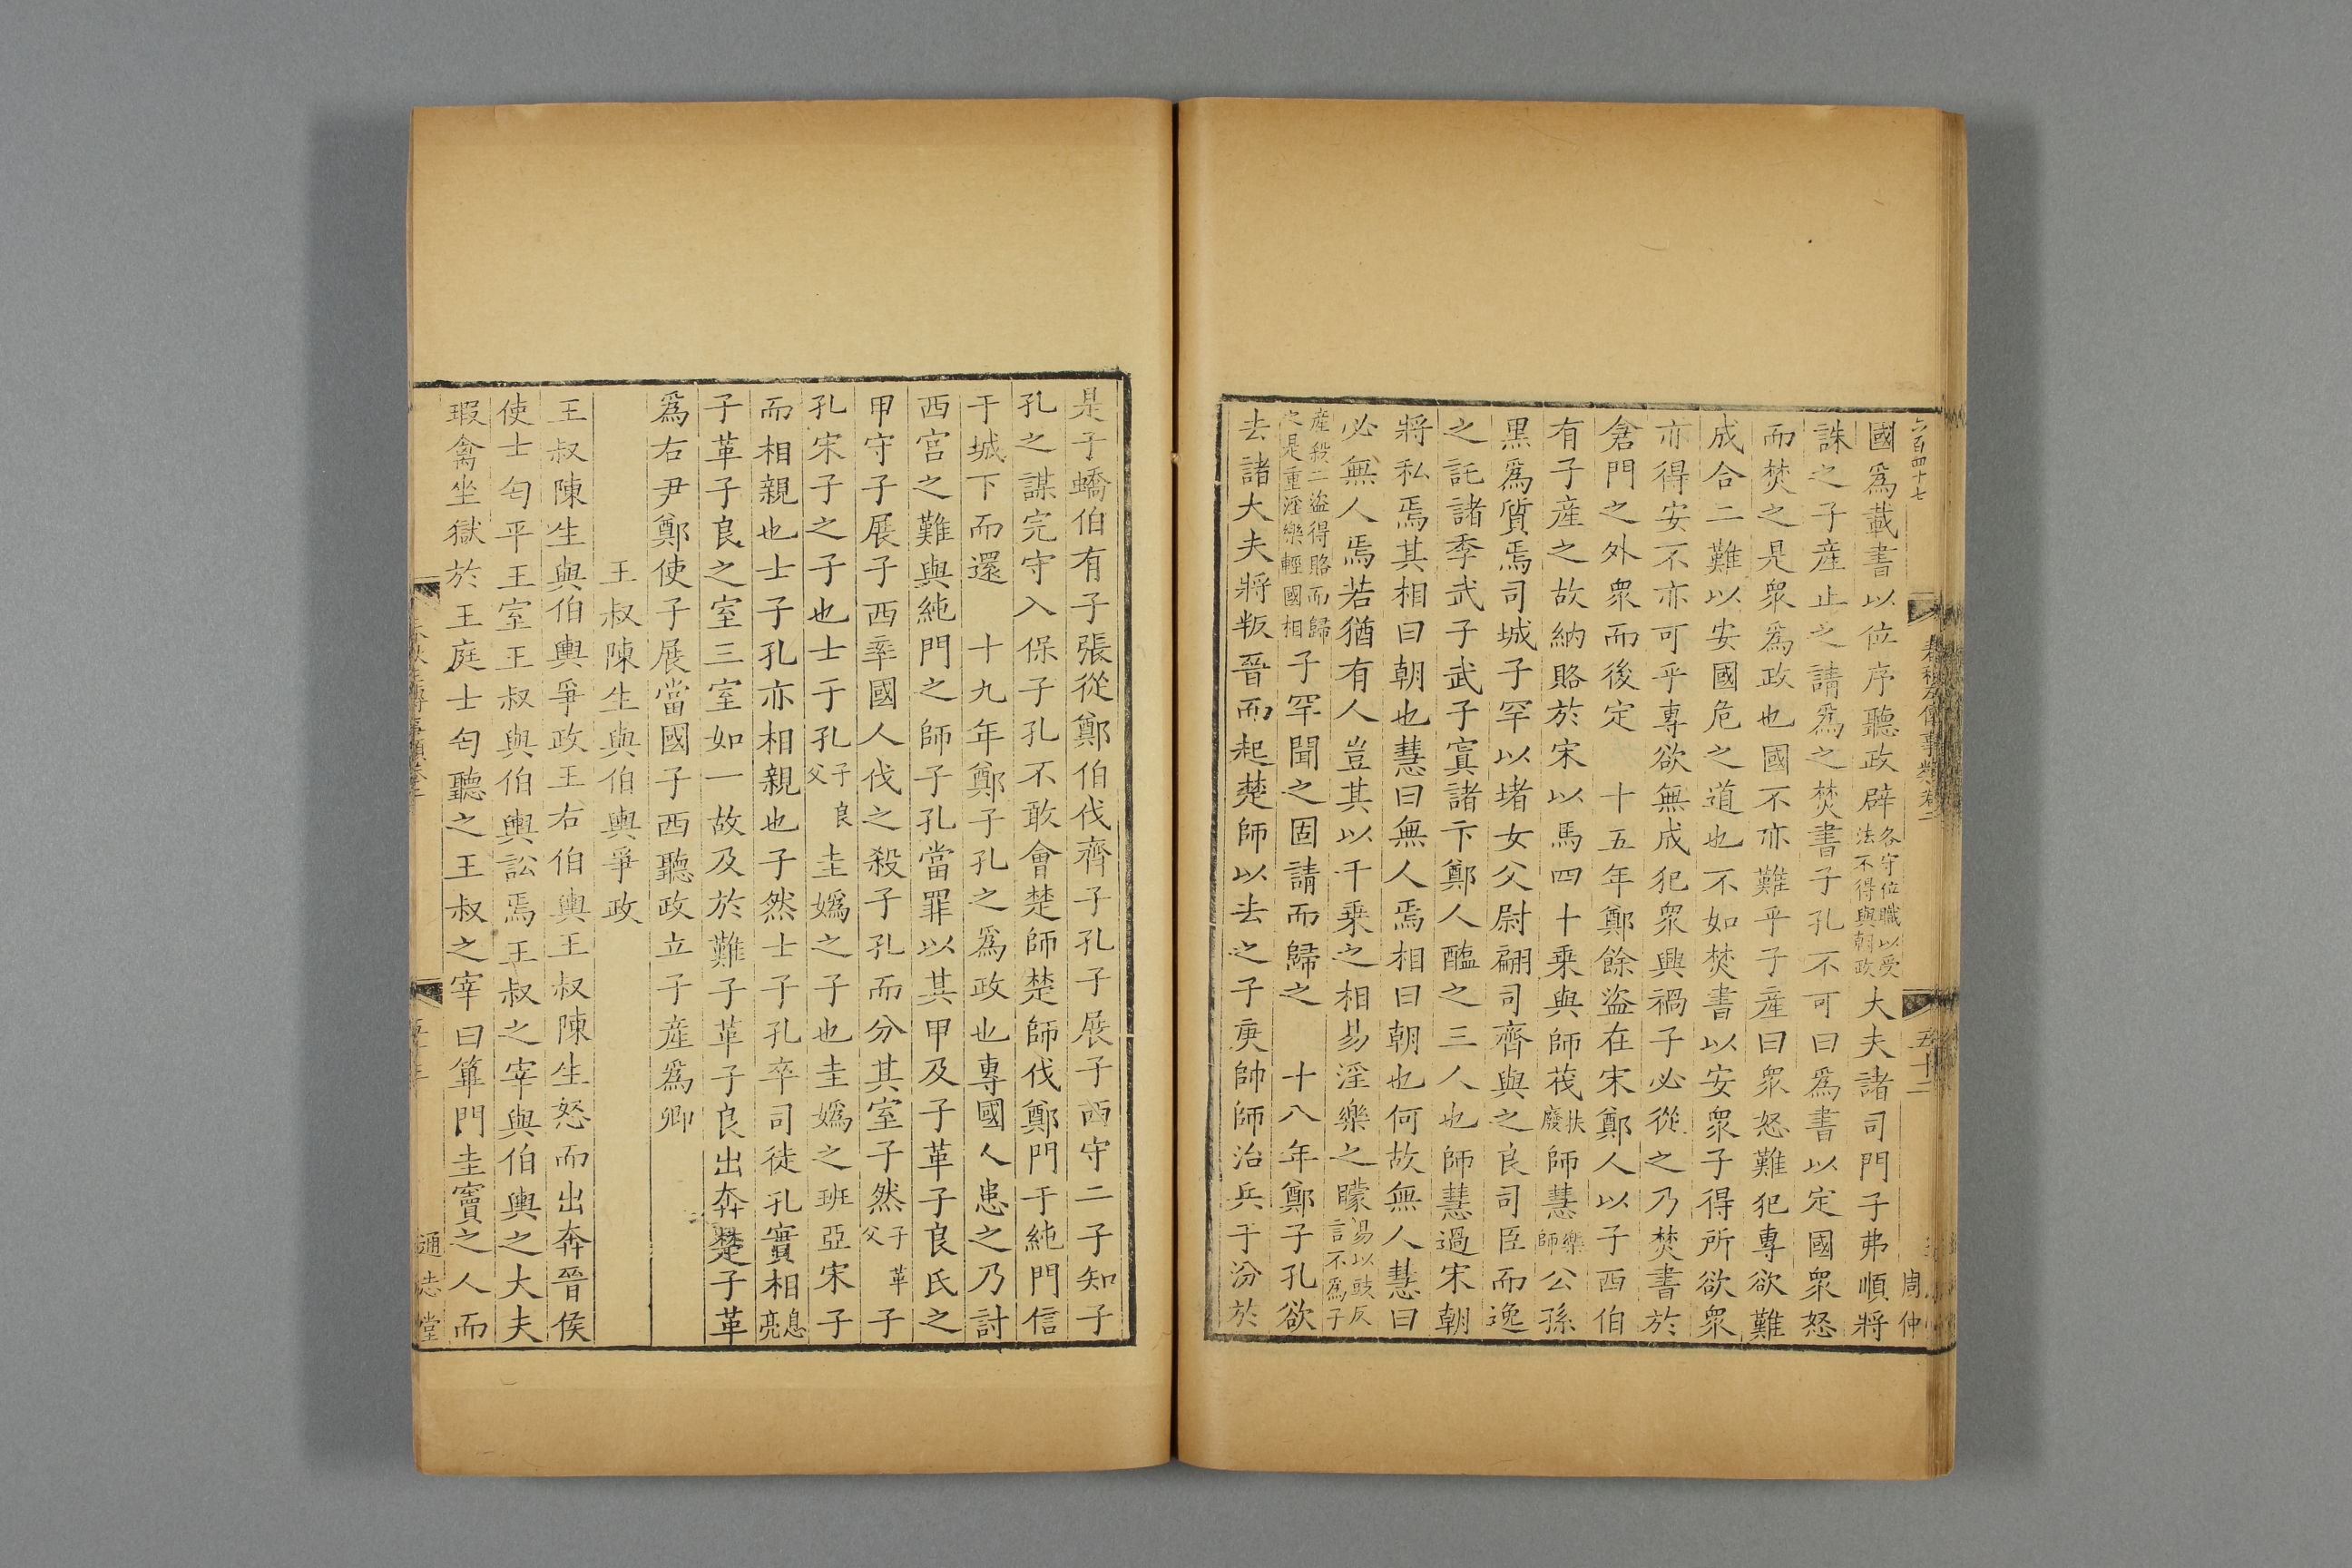 六百四十七
春秋左傳事類卷二
五十二
周仲
國爲載書以位序聽政辟各守位職以受法不得與朝政大夫諸司門子弗順將
誅之子產止之請爲之焚書子孔不可曰爲書以定國眾怒
而焚之是眾爲政也國不亦難乎子產曰眾怒難犯專欲難
成合二難以安國危之道也不如焚書以安眾子得所欲眾
亦得安不亦可乎專欲無成犯眾興禍子必從之乃焚書於
倉門之外眾而後定 十五年鄭餘盜在宋鄭人以子西伯
有子產之故納賂於宋以馬四十乘與師茷扶廢師慧樂師公孫
黑爲質焉司城子罕以堵女父尉翩司齊與之良司臣而逸
之託諸季武子武子寘諸卞鄭人醢之三人也師慧過宋朝
將私焉其相曰朝也慧曰無人焉相曰朝也何故無人慧曰
必無人焉若猶有人豈其以千乘之相易淫樂之矇易以豉反言不爲子
產殺二盜得賂而歸之是重淫樂輕國相子罕聞之固請而歸之 十八年鄭子孔欲
去諸大夫將叛晉而起楚師以去之子庚帥師治兵于汾於
是子蟜伯有子張從鄭伯伐齊子孔子展子西守二子知子
孔之謀完守入保子孔不敢會楚師楚師伐鄭門于純門信
于城下而還 十九年鄭子孔之爲政也專國人患之乃討
西宮之難與純門之師子孔當罪以其甲及子革子良氏之
甲守子展子西率國人伐之殺子孔而分其室子然子革父子
孔宋子之子也士子孔子良父圭嬀之子也圭嬀之班亞宋子
而相親也士子孔亦相親也子然士子孔卒司徒孔實相息亮
子革子良之室三室如一故及於難子革子良出奔楚子革
爲右尹鄭使子展當國子西聽政立子產爲卿
王叔陳生與伯輿爭政
王叔陳生與伯輿爭政王右伯輿王叔陳生怒而出奔晉侯
使士匄平王室王叔與伯輿訟焉王叔之宰與伯輿之大夫
瑕禽坐獄於王庭士匄聽之王叔之宰曰篳門圭竇之人而
通志堂